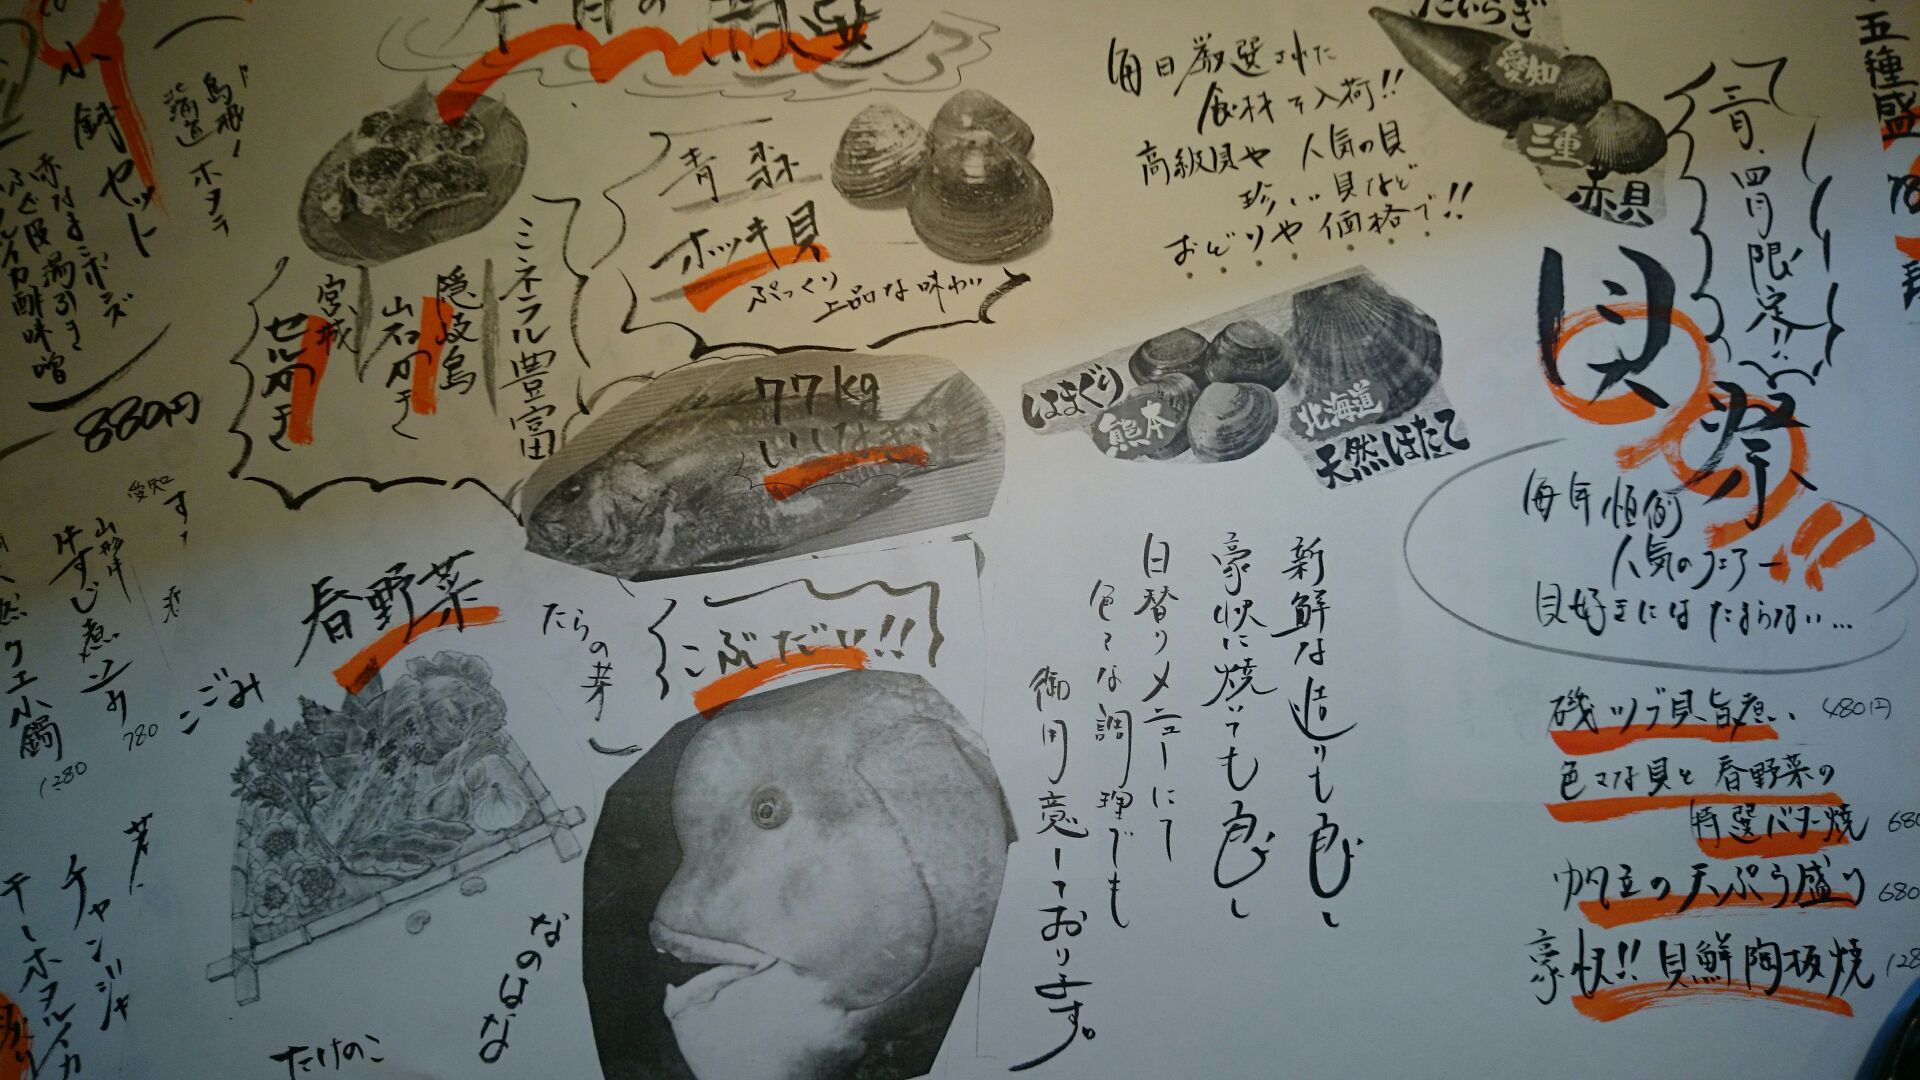 五種盛
三月、四月限定!!
貝祭!!
毎年恒例
人気のフェアー
貝好きにはたまらない…
磯ツブ貝旨煮 480円
色々な貝と春野菜の
特選バター焼 680
帆立の天ぷら盛り 680
豪快!!貝鮮陶板焼
たいらぎ
愛知
三重
赤貝
毎日厳選された
食材を入荷!!
高級貝や人気の貝
珍しい貝など
おどりや価格で!!
はまぐり
熊本
北海道
天然ほたて
新鮮な造りも良し
豪快に焼いても良し
日替りメニューにて
色々な調理でも
御用意しております。
今月の特選
青森
ホッキ貝
ぷっくり
上品な味わい
ミネラル豊富
隠岐島
岩がき
宮城
セルがき
77kg
いしなぎ
こぶだい!!
春野菜
たらの芽
こごみ
なのはな
たけのこ
小鉢セット
赤なまこポン酢
ホタルイカ酢味噌
880円
島根
北海道
ホタテ
愛知
山形牛
牛すじ煮込み
780
クエ小鍋
1280
チャンジャ
チーホタルイカ